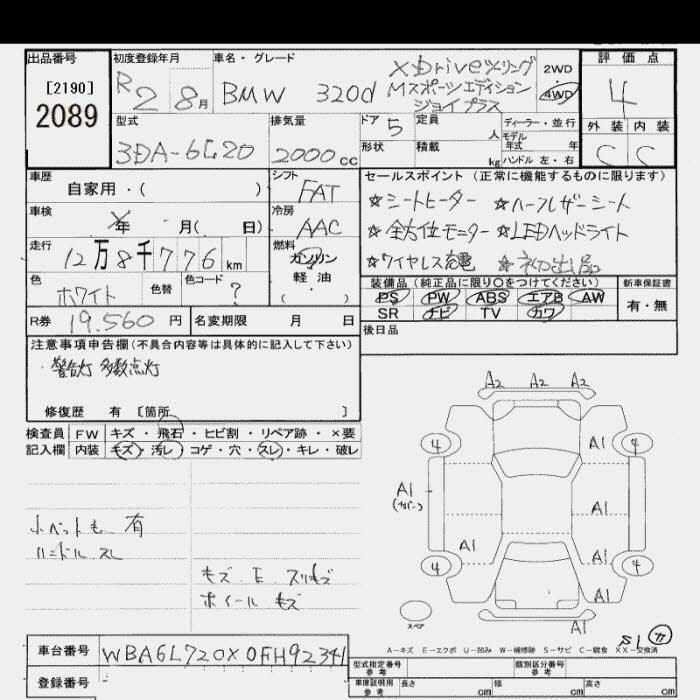 出品番号
[2190]
2089
初度登録年月
R2 8月
車名・グレード
BMW 320d
XDriveツーリング
Mスポーツエディション
ジョイプラス
2WD
4WD
評価点
4
型式
3DA-6L20
排気量
2000cc
ドア 5
定員 人
形状
積載 kg
ディーラー・並行
モデル年式 年
ハンドル 左・右
外装 内装
C C
車歴
自家用・( )
シフト
FAT
セールスポイント (正常に機能するものに限ります)
☆シートヒーター ☆ハーフレザーシート
☆全方位モニター ☆LEDヘッドライト
☆ワイヤレス充電 ☆初出品
車検
年 月( 日)
冷房
AAC
走行
12万8千776km
燃料
ガソリン
軽油
( )
色
ホワイト
色替
色コード
?
装備品 (純正品に限り○をつけてください)
PS PW ABS エアB AW
SR ナビ TV カワ
新車保証書
有・無
R券 19.560円
名変期限 月 日
後日品
注意事項申告欄(不具合内容等は具体的に記入して下さい)
・警告灯 多数点灯
修復歴 有 [箇所 ]
検査員 FW キズ・飛石・ヒビ割・リペア跡・×要
記入欄 内装 キズ・汚レ・コゲ・穴・スレ・キレ・破レ
A2 A2 A2
4 A1 4
A1
(カバー)
A1
A1 A1
4 4
A1
小ヘットも 有
ハンドル スレ
キズ E スリキズ
ホイール キズ
スペア
A1
S1 カ
A-キズ E-エクボ U-凹み W-補修跡 S-サビ C-腐食 XX-交換済
車台番号 WBA6L720X0FH92341
登録番号
型式指定番号
参考
類別区分番号
参考
車庫証明用
参考
長さ cm 幅 cm 高さ cm